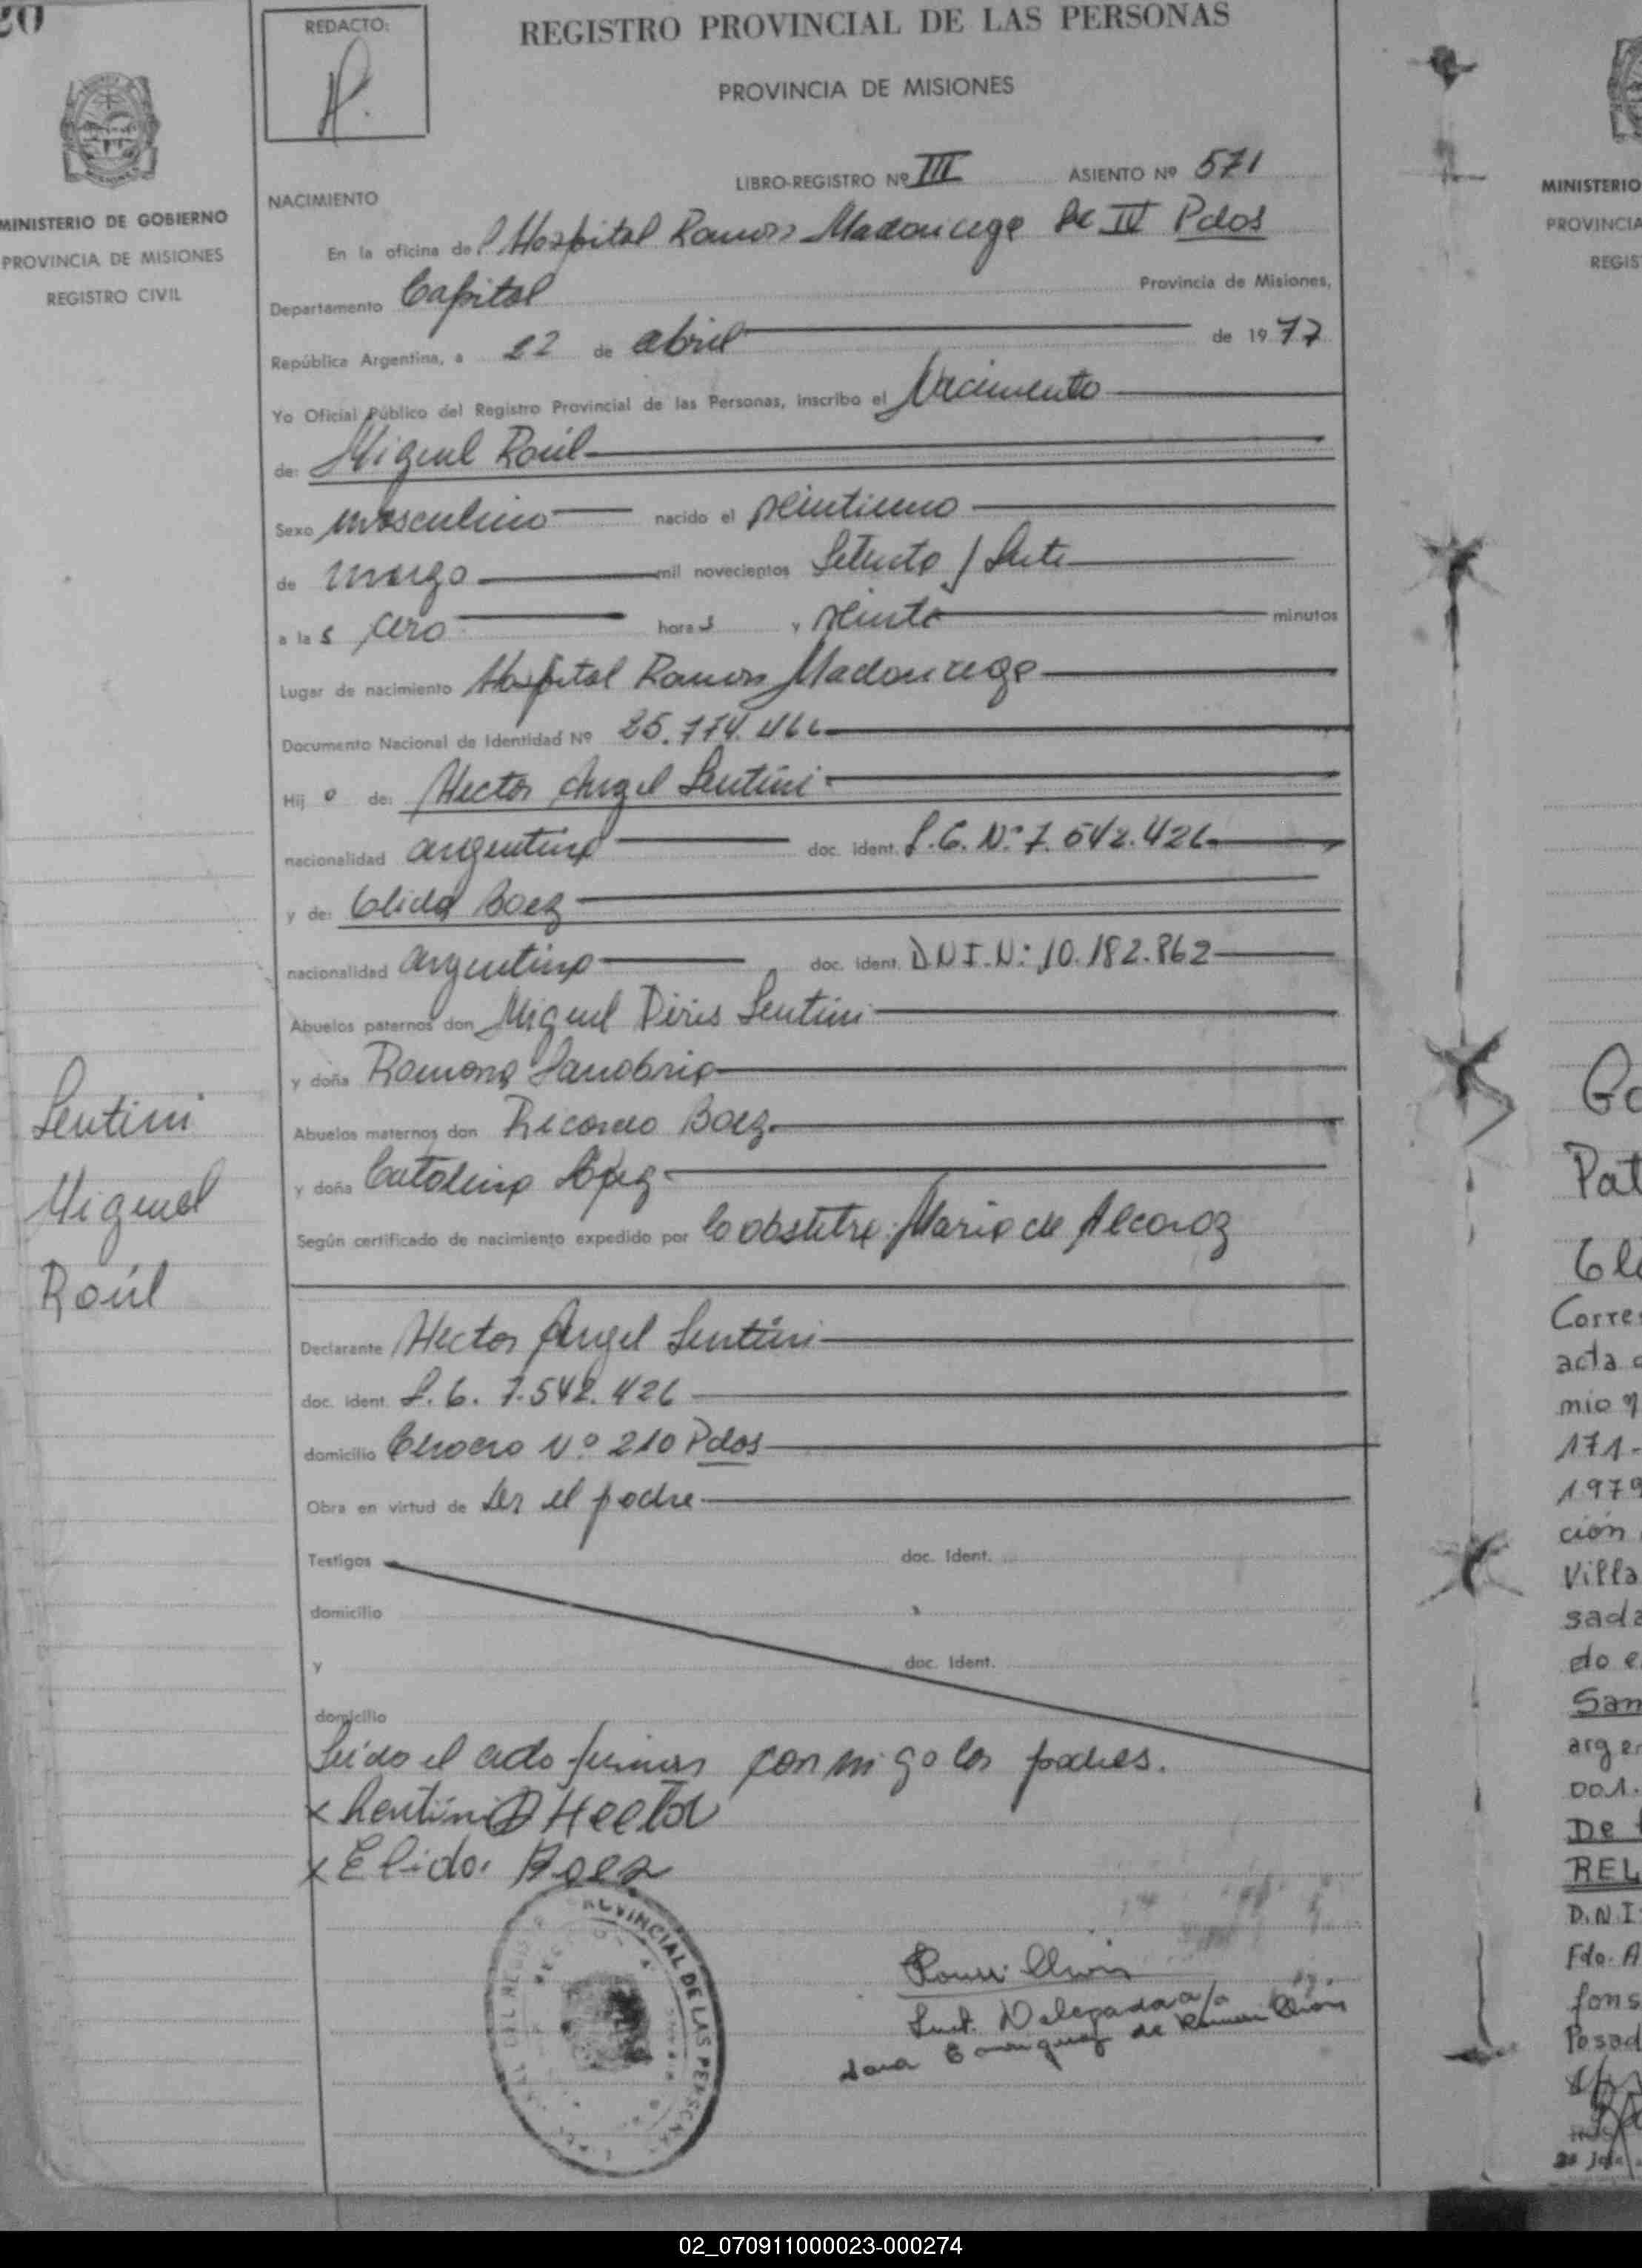 REDACTO:
REGISTRO PROVINCIAL DE LAS PERSONAS
PROVINCIA DE MISIONES
MINISTERIO DE GOBIERNO
PROVINCIA DE MISIONES
REGISTRO CIVIL
LIBRO-REGISTRO Nº III ASIENTO Nº 571
NACIMIENTO
En la oficina del Hospital Ramon Madariaga Sec IV Pdas
Departamento Capital Provincia de Misiones,
República Argentina, a 22 de abril de 1977
Yo Oficial Público del Registro Provincial de las Personas, inscribo el Nacimiento
de: Miguel Raúl
Sexo masculino nacido el veintiuno
de marzo mil novecientos Setenta y Siete
a las cero horas y veinte minutos
Lugar de nacimiento Hospital Ramon Madariaga
Documento Nacional de Identidad Nº 25.774.466
Hijo de: Hector Angel Sentini
nacionalidad argentina doc. ident. L.E. Nº 7.542.426
y de: Elida Baez
nacionalidad argentina doc. ident. D.N.I. N: 10.182.862
Abuelos paternos don Miguel Sentini
y doña Ramona Sanabria
Abuelos maternos don Ricardo Baez
y doña Catalina López
Según certificado de nacimiento expedido por la obstetra: Maria de Alcaraz
Declarante Hector Angel Sentini
doc. ident. L.E. 7.542.426
domicilio Nº 210 Pdas
Obra en virtud de ser el padre
Testigos doc. Ident.
domicilio
y doc. Ident.
domicilio
Leido el acto firman conmigo los padres.
x Sentini Hector
x Elida Baez
Sentini
Miguel
Raúl
PROVINCIAL DE LAS PERSONAS
Sust. Delegada a/c
MINISTERIO
PROVINCIA
REGIS
Pat
Corres
acta
171-
1979
ción
Villa
sada
do e
San
arg
001.
De
REL
D.N.I
Fdo. A
fons
Posad
02_070911000023-000274